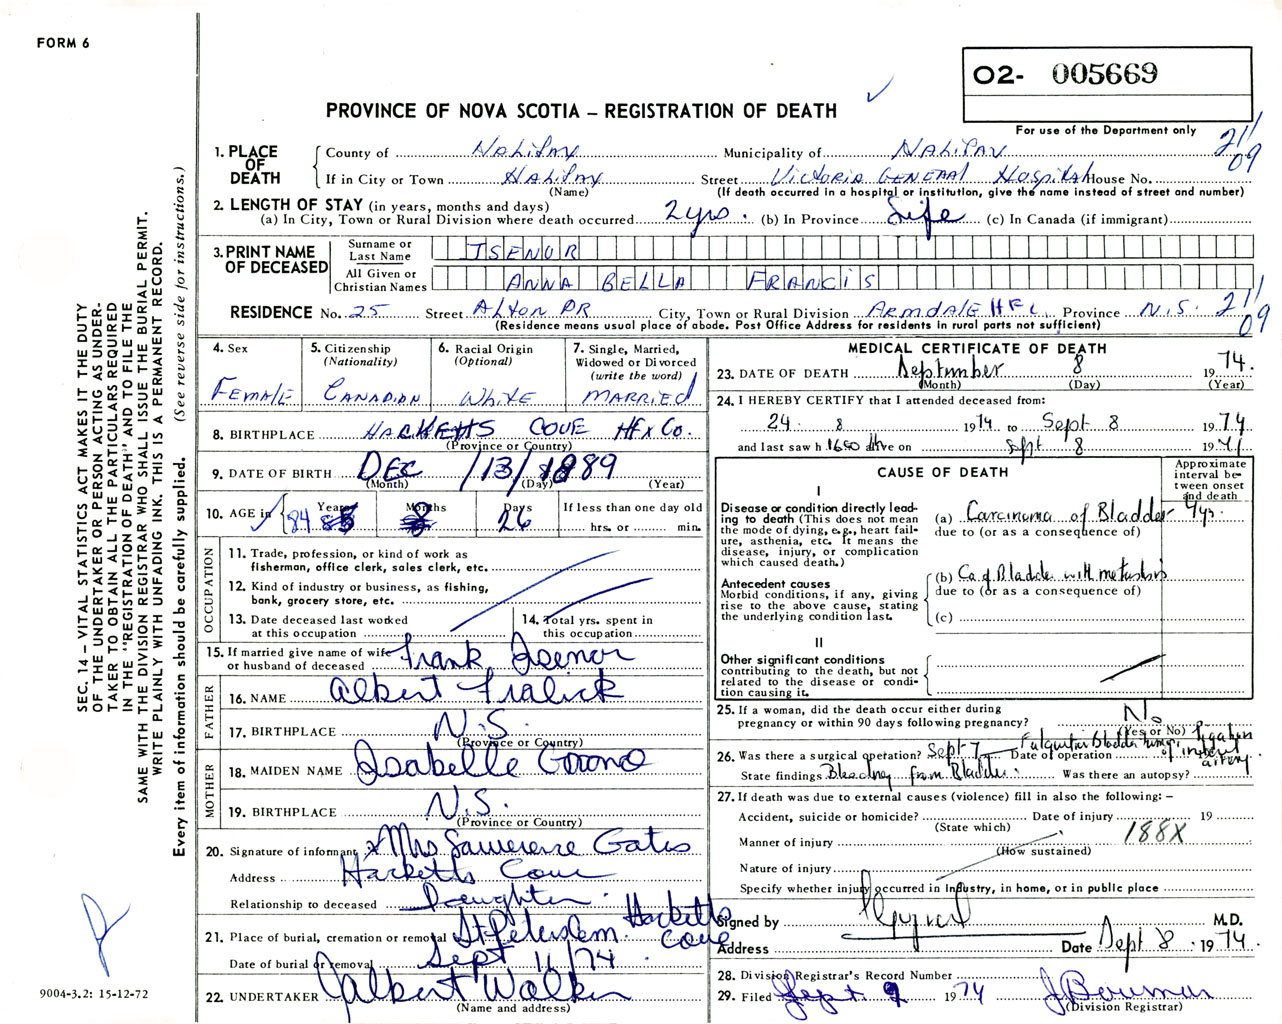 FORM 6
O2- 005669
PROVINCE OF NOVA SCOTIA – REGISTRATION OF DEATH
For use of the Department only
21/09
SEC. 14 – VITAL STATISTICS ACT MAKES IT THE DUTY
OF THE UNDERTAKER OR PERSON ACTING AS UNDER-
TAKER TO OBTAIN ALL THE PARTICULARS REQUIRED
IN THE "REGISTRATION OF DEATH" AND TO FILE THE
SAME WITH THE DIVISION REGISTRAR WHO SHALL ISSUE THE BURIAL PERMIT.
WRITE PLAINLY WITH UNFADING INK. THIS IS A PERMANENT RECORD.
Every item of information should be carefully supplied. (See reverse side for instructions.)
1. PLACE OF DEATH
County of Halifax Municipality of Halifax
If in City or Town Halifax Street Victoria General Hospital House No.
(Name) (If death occurred in a hospital or institution, give the name instead of street and number)
2. LENGTH OF STAY (in years, months and days)
(a) In City, Town or Rural Division where death occurred 2 yrs. (b) In Province Life (c) In Canada (if immigrant)
3. PRINT NAME OF DECEASED
Surname or Last Name ISENOR
All Given or Christian Names ANNA BELLA FRANCIS
RESIDENCE No. 25 Street Alton DR City, Town or Rural Division Armdale HFL Province N.S. 21/09
(Residence means usual place of abode. Post Office Address for residents in rural parts not sufficient)
4. Sex
Female
5. Citizenship (Nationality)
Canadian
6. Racial Origin (Optional)
White
7. Single, Married, Widowed or Divorced (write the word)
Married
8. BIRTHPLACE Hacketts Cove Hfx Co.
(Province or Country)
9. DATE OF BIRTH Dec /13/ 1889
(Month) (Day) (Year)
10. AGE in Years 84 Months 8 Days 26 If less than one day old
hrs. or min.
OCCUPATION
11. Trade, profession, or kind of work as
fisherman, office clerk, sales clerk, etc.
12. Kind of industry or business, as fishing,
bank, grocery store, etc.
13. Date deceased last worked
at this occupation
14. Total yrs. spent in
this occupation
15. If married give name of wife
or husband of deceased Frank Isenor
FATHER
16. NAME Albert Fralick
17. BIRTHPLACE N.S.
(Province or Country)
MOTHER
18. MAIDEN NAME Isabelle
19. BIRTHPLACE N.S.
(Province or Country)
20. Signature of informant x Mrs Lawrence Gates
Address Hacketts Cove
Relationship to deceased Daughter
21. Place of burial, cremation or removal St Peters Cem. Hacketts Cove
Date of burial or removal Sept 11/74.
22. UNDERTAKER Albert Walker
(Name and address)
9004-3.2: 15-12-72
MEDICAL CERTIFICATE OF DEATH
23. DATE OF DEATH September 8 1974.
(Month) (Day) (Year)
24. I HEREBY CERTIFY that I attended deceased from:
24 . 8 1974 to Sept 8 1974
and last saw h alive on Sept 8 1974
CAUSE OF DEATH
Approximate interval between onset and death
I
Disease or condition directly lead-
ing to death (This does not mean
the mode of dying, e.g., heart fail-
ure, asthenia, etc. It means the
disease, injury, or complication
which caused death.)
(a) Carcinoma of Bladder 4 yrs.
due to (or as a consequence of)
Antecedent causes
Morbid conditions, if any, giving
rise to the above cause, stating
the underlying condition last.
(b) Ca of Bladder with metastasis
due to (or as a consequence of)
(c)
II
Other significant conditions
contributing to the death, but not
related to the disease or condi-
tion causing it.
25. If a woman, did the death occur either during
pregnancy or within 90 days following pregnancy? No
(Yes or No)
26. Was there a surgical operation? Sept 7 Date of operation Bladder ligation of artery
State findings Bleeding from Bladder. Was there an autopsy?
27. If death was due to external causes (violence) fill in also the following: –
Accident, suicide or homicide? Date of injury 19
(State which)
188X
Manner of injury
(How sustained)
Nature of injury
Specify whether injury occurred in Industry, in home, or in public place
Signed by M.D.
Address Date Sept 8 . 1974.
28. Division Registrar's Record Number
29. Filed Sept. 9 1974 J Bowman
(Division Registrar)